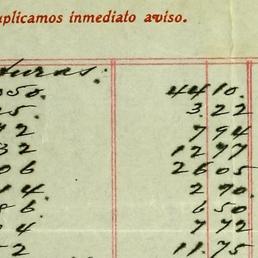 uplicamos inmediato aviso.
turas.
050. 4410.
25. 3.22
72 7 94
32 12 77
06 26 05
14. 2 70.
86. 6 50
24 7 72
52 11.75